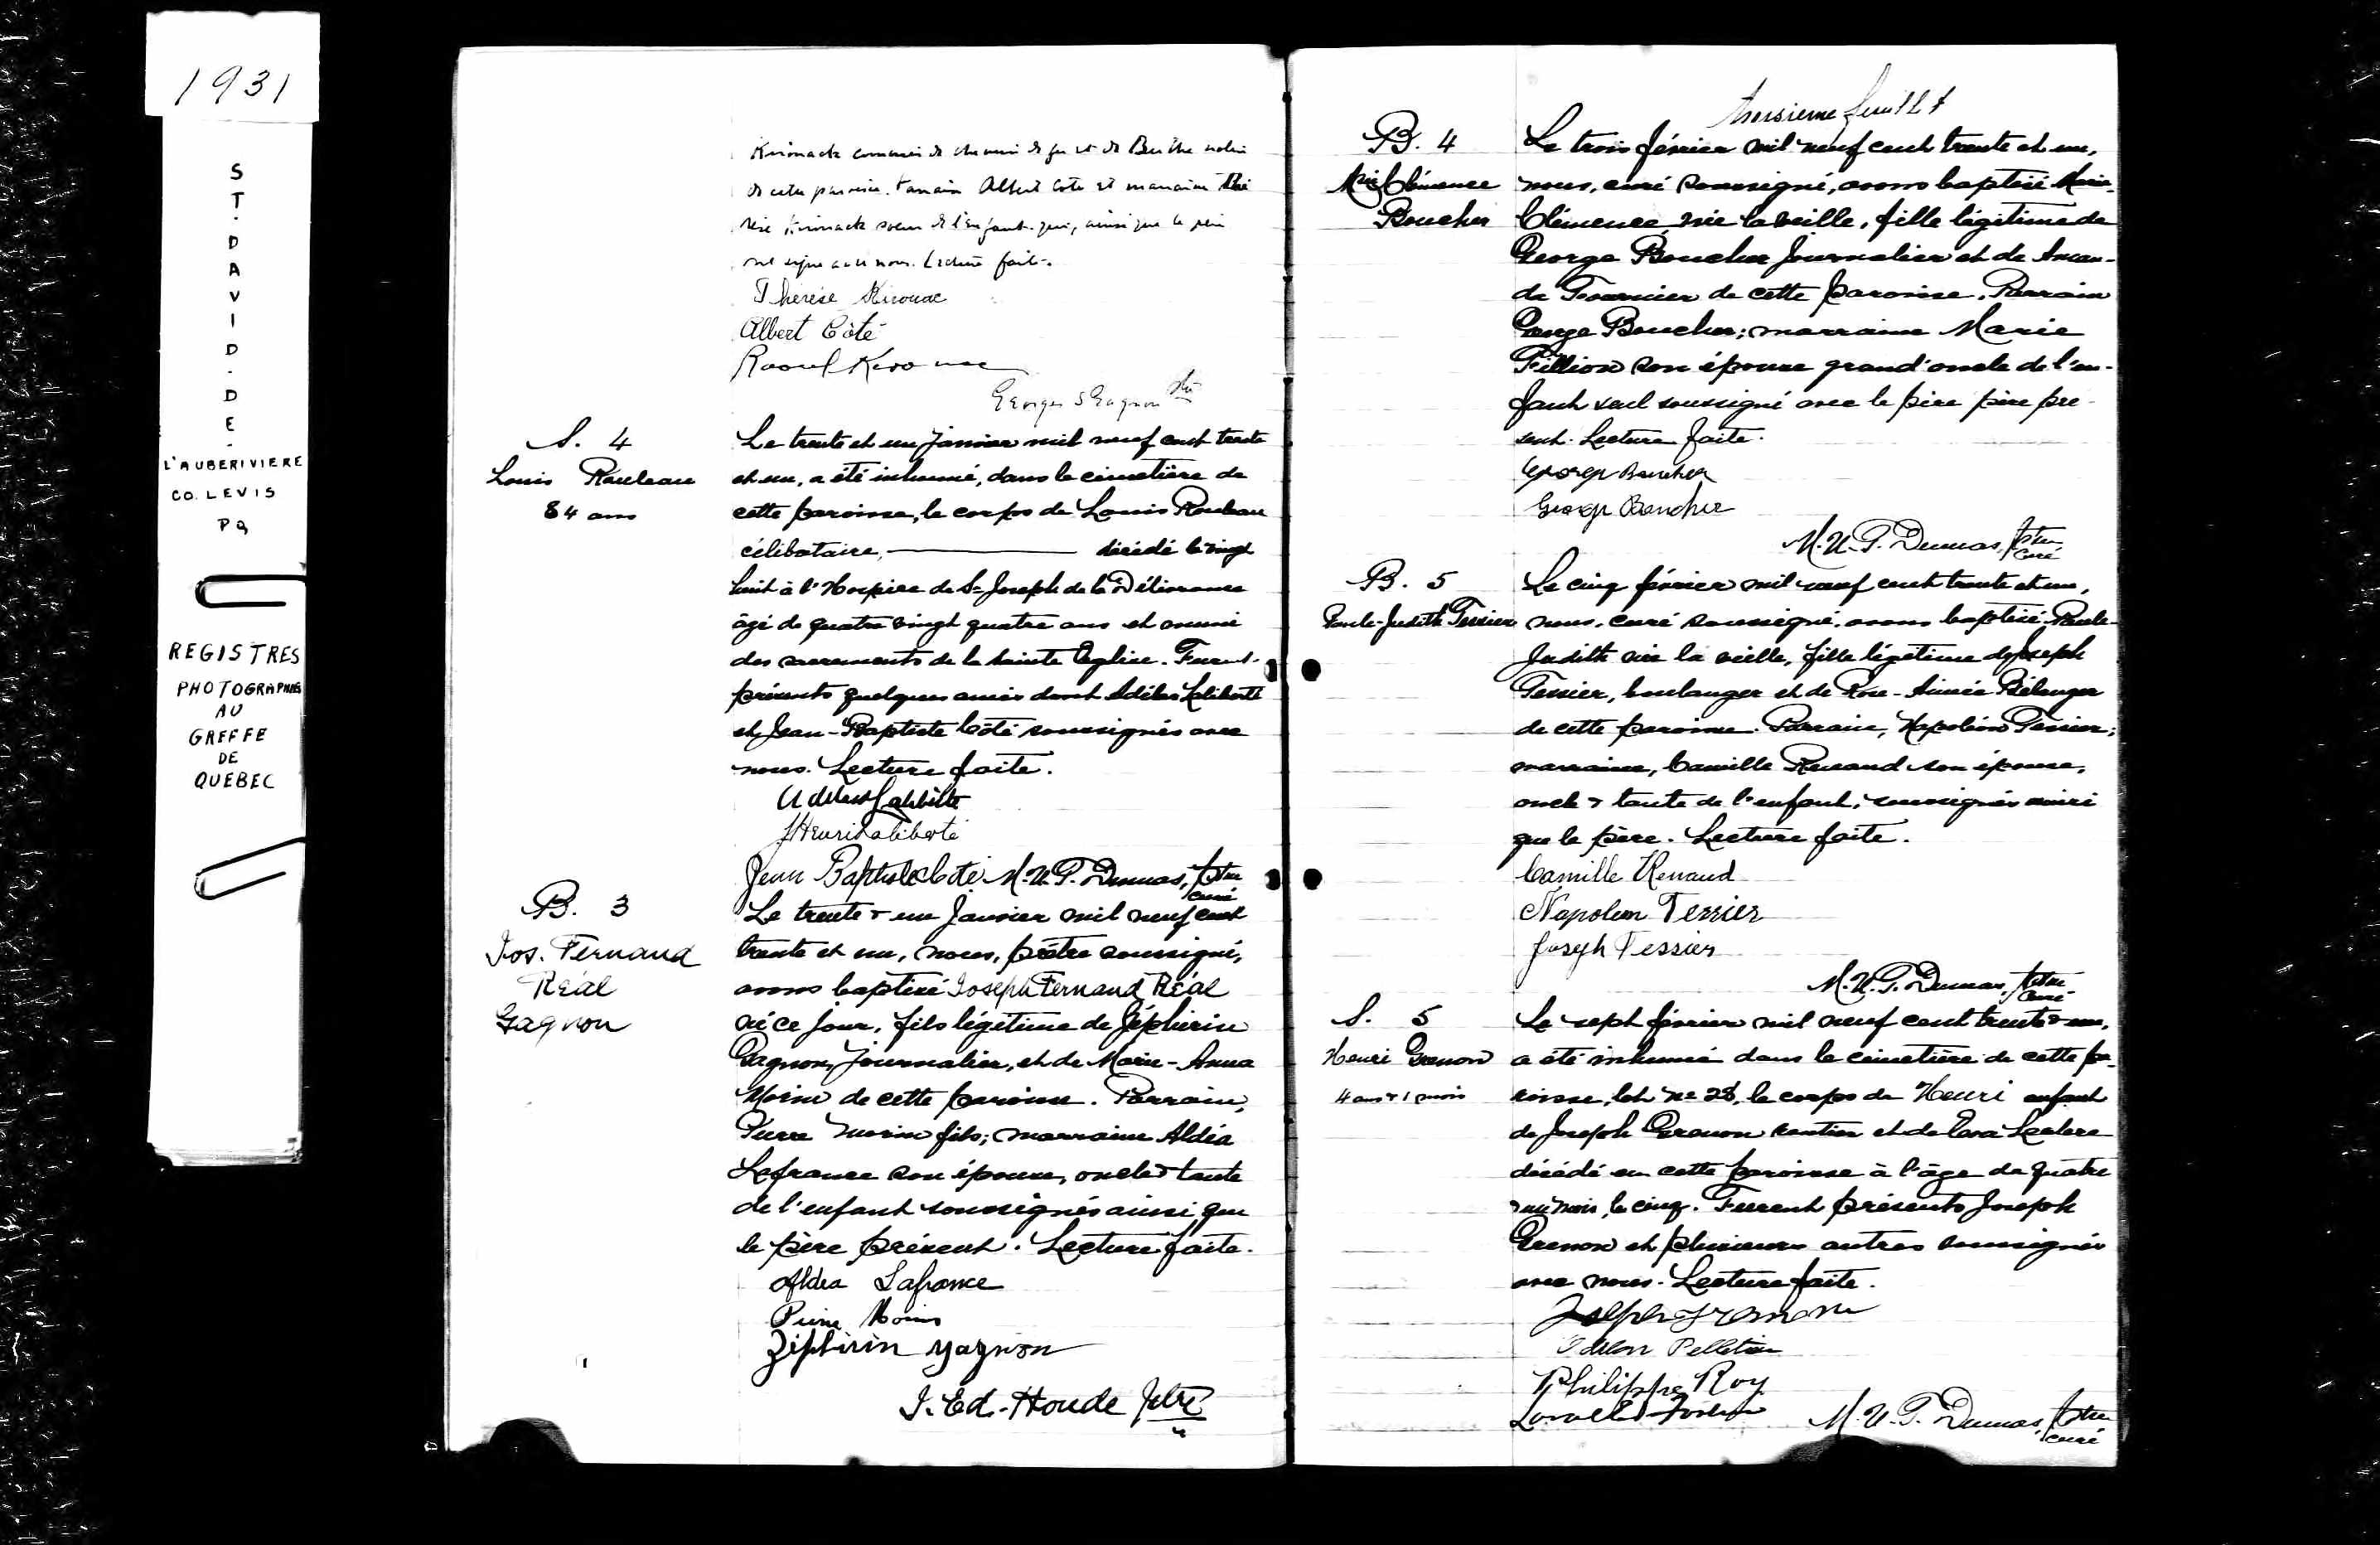 1931
ST. DAVID. DE.
L'AUBERIVIERE
CO. LEVIS
PQ
REGISTRES
PHOTOGRAPHIES
AU
GREFFE
DE
QUEBEC
de cette paroisse. Parrain Albert Coté et marraine Thé
rèse Kirouack soeur de l'enfant qui, ainsi que le père
ont signé avec nous. Lecture faite.
Thérèse Kirouac
Albert Côté
Raoul Kirouac
Georges S Gagnon Ptr
S. 4
Louis Rouleau
84 ans
Le trente et un janvier mil neuf cent trente
et un, a été inhumé, dans le cimetière de
cette paroisse, le corps de Louis Rouleau
célibataire, décédé le vingt
huit à l'Hospice de St-Joseph de la Délivrance
âgé de quatre vingt quatre ans et muni
des sacrements de la Sainte Eglise. Furent
présents quelques amis dont Adélas Laliberté
et Jean-Baptiste Côté soussignés avec
nous. Lecture faite.
Adelas Laliberté
J Henri Laliberté
Jean Baptiste Coté M.U.P. Dumas, ptre
curé
B. 3
Jos. Fernand
Réal
Gagnon
Le trente & un Janvier mil neuf cent
trente et un, nous, prêtre soussigné,
avons baptisé Joseph Fernand Réal
né ce jour, fils légitime de Zéphirin
Gagnon, journalier, et de Marie-Anna
Morin de cette paroisse. Parrain,
Pierre Morin fils; marraine Aldéa
Lafrance son épouse, oncle & tante
de l'enfant soussignés ainsi que
le père présent. Lecture faite.
Aldea Lafrance
Pierre Morin
Ziphirin Gagnon
J. Ed. Houde Ptre
troisième feuillet
B. 4
Mie Clémence
Boucher
Le trois février mil neuf cent trente et un,
nous, curé soussigné, avons baptisé Marie-
Clémence, née la veille, fille légitime de
George Boucher journalier et de Aman-
da Fournier de cette paroisse. Parrain
George Boucher; marraine Marie
Fillion son épouse grand'oncle de l'en-
fant seul soussigné avec le père père pré-
sent. Lecture faite.
George Boucher
George Boucher
M.U.P. Dumas, ptre
curé
B. 5
Paule-Judith Tessier
Le cinq février mil neuf cent trente et un,
nous, curé soussigné, avons baptisé Paule-
Judith née la veille, fille légitime de Joseph
Tessier, boulanger et de Rose-Aimée Bélanger
de cette paroisse. Parrain, Napoléon Tessier;
marraine, Camille Renaud son épouse,
oncle & tante de l'enfant, soussignés ainsi
que le père. Lecture faite.
Camille Renaud
Napoleon Tessier
Joseph Tessier
M.U.P. Dumas, ptre
curé
S. 5
Henri Grenon
4 ans & 1 mois
Le sept février mil neuf cent trente & un,
a été inhumé dans le cimetière de cette pa-
roisse, lot no 28, le corps de Henri enfant
de Joseph Grenon rentier et de Eva Leclerc
décédé en cette paroisse à l'âge de quatre
& un mois, le cinq. Furent présents Joseph
Grenon et plusieurs autres soussignés
avec nous. Lecture faite.
Joseph Grenon
Odilon Pelletier
Philippe Roy
M.U.P. Dumas, ptre
curé